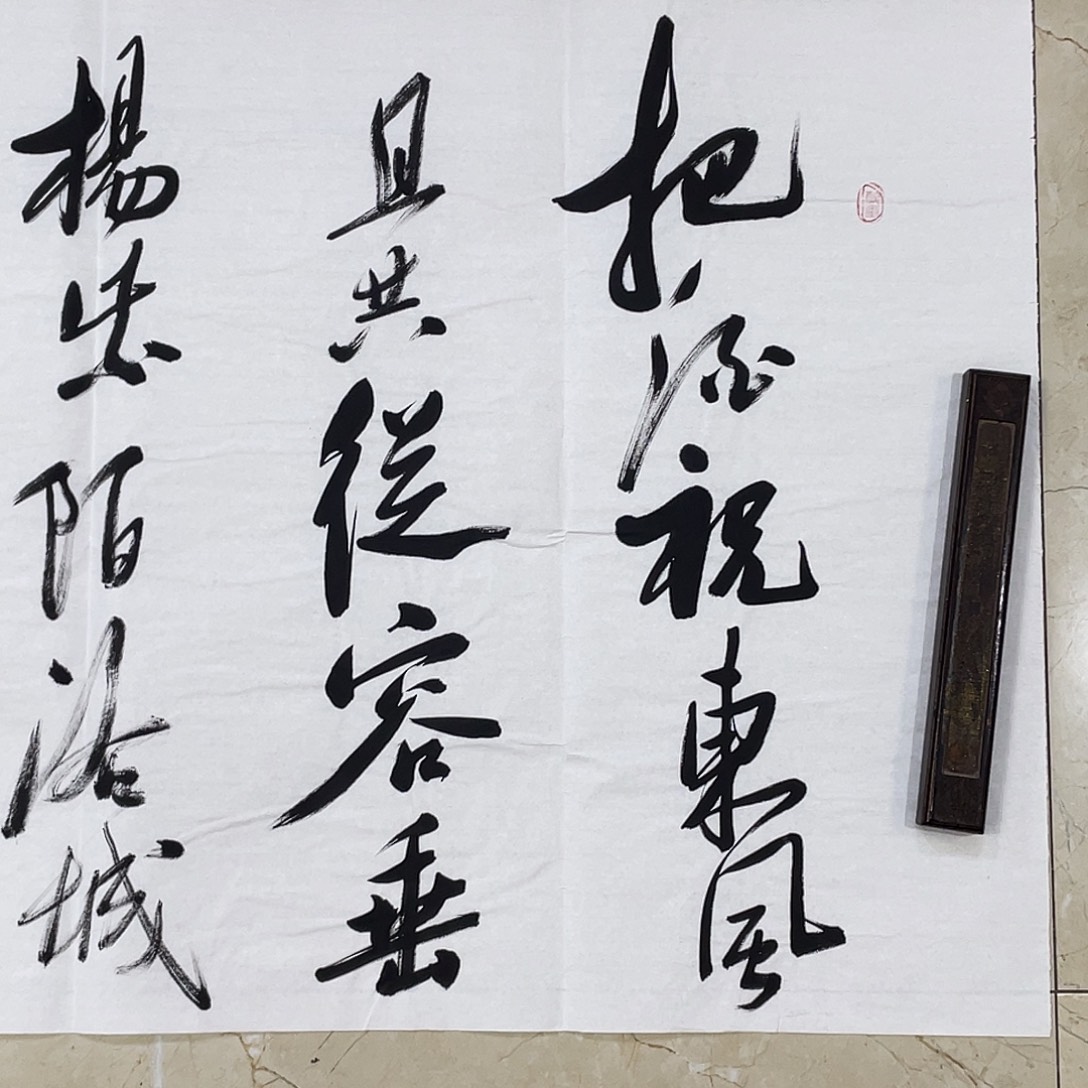 把酒祝東風
且共從容垂
楊紫陌洛城